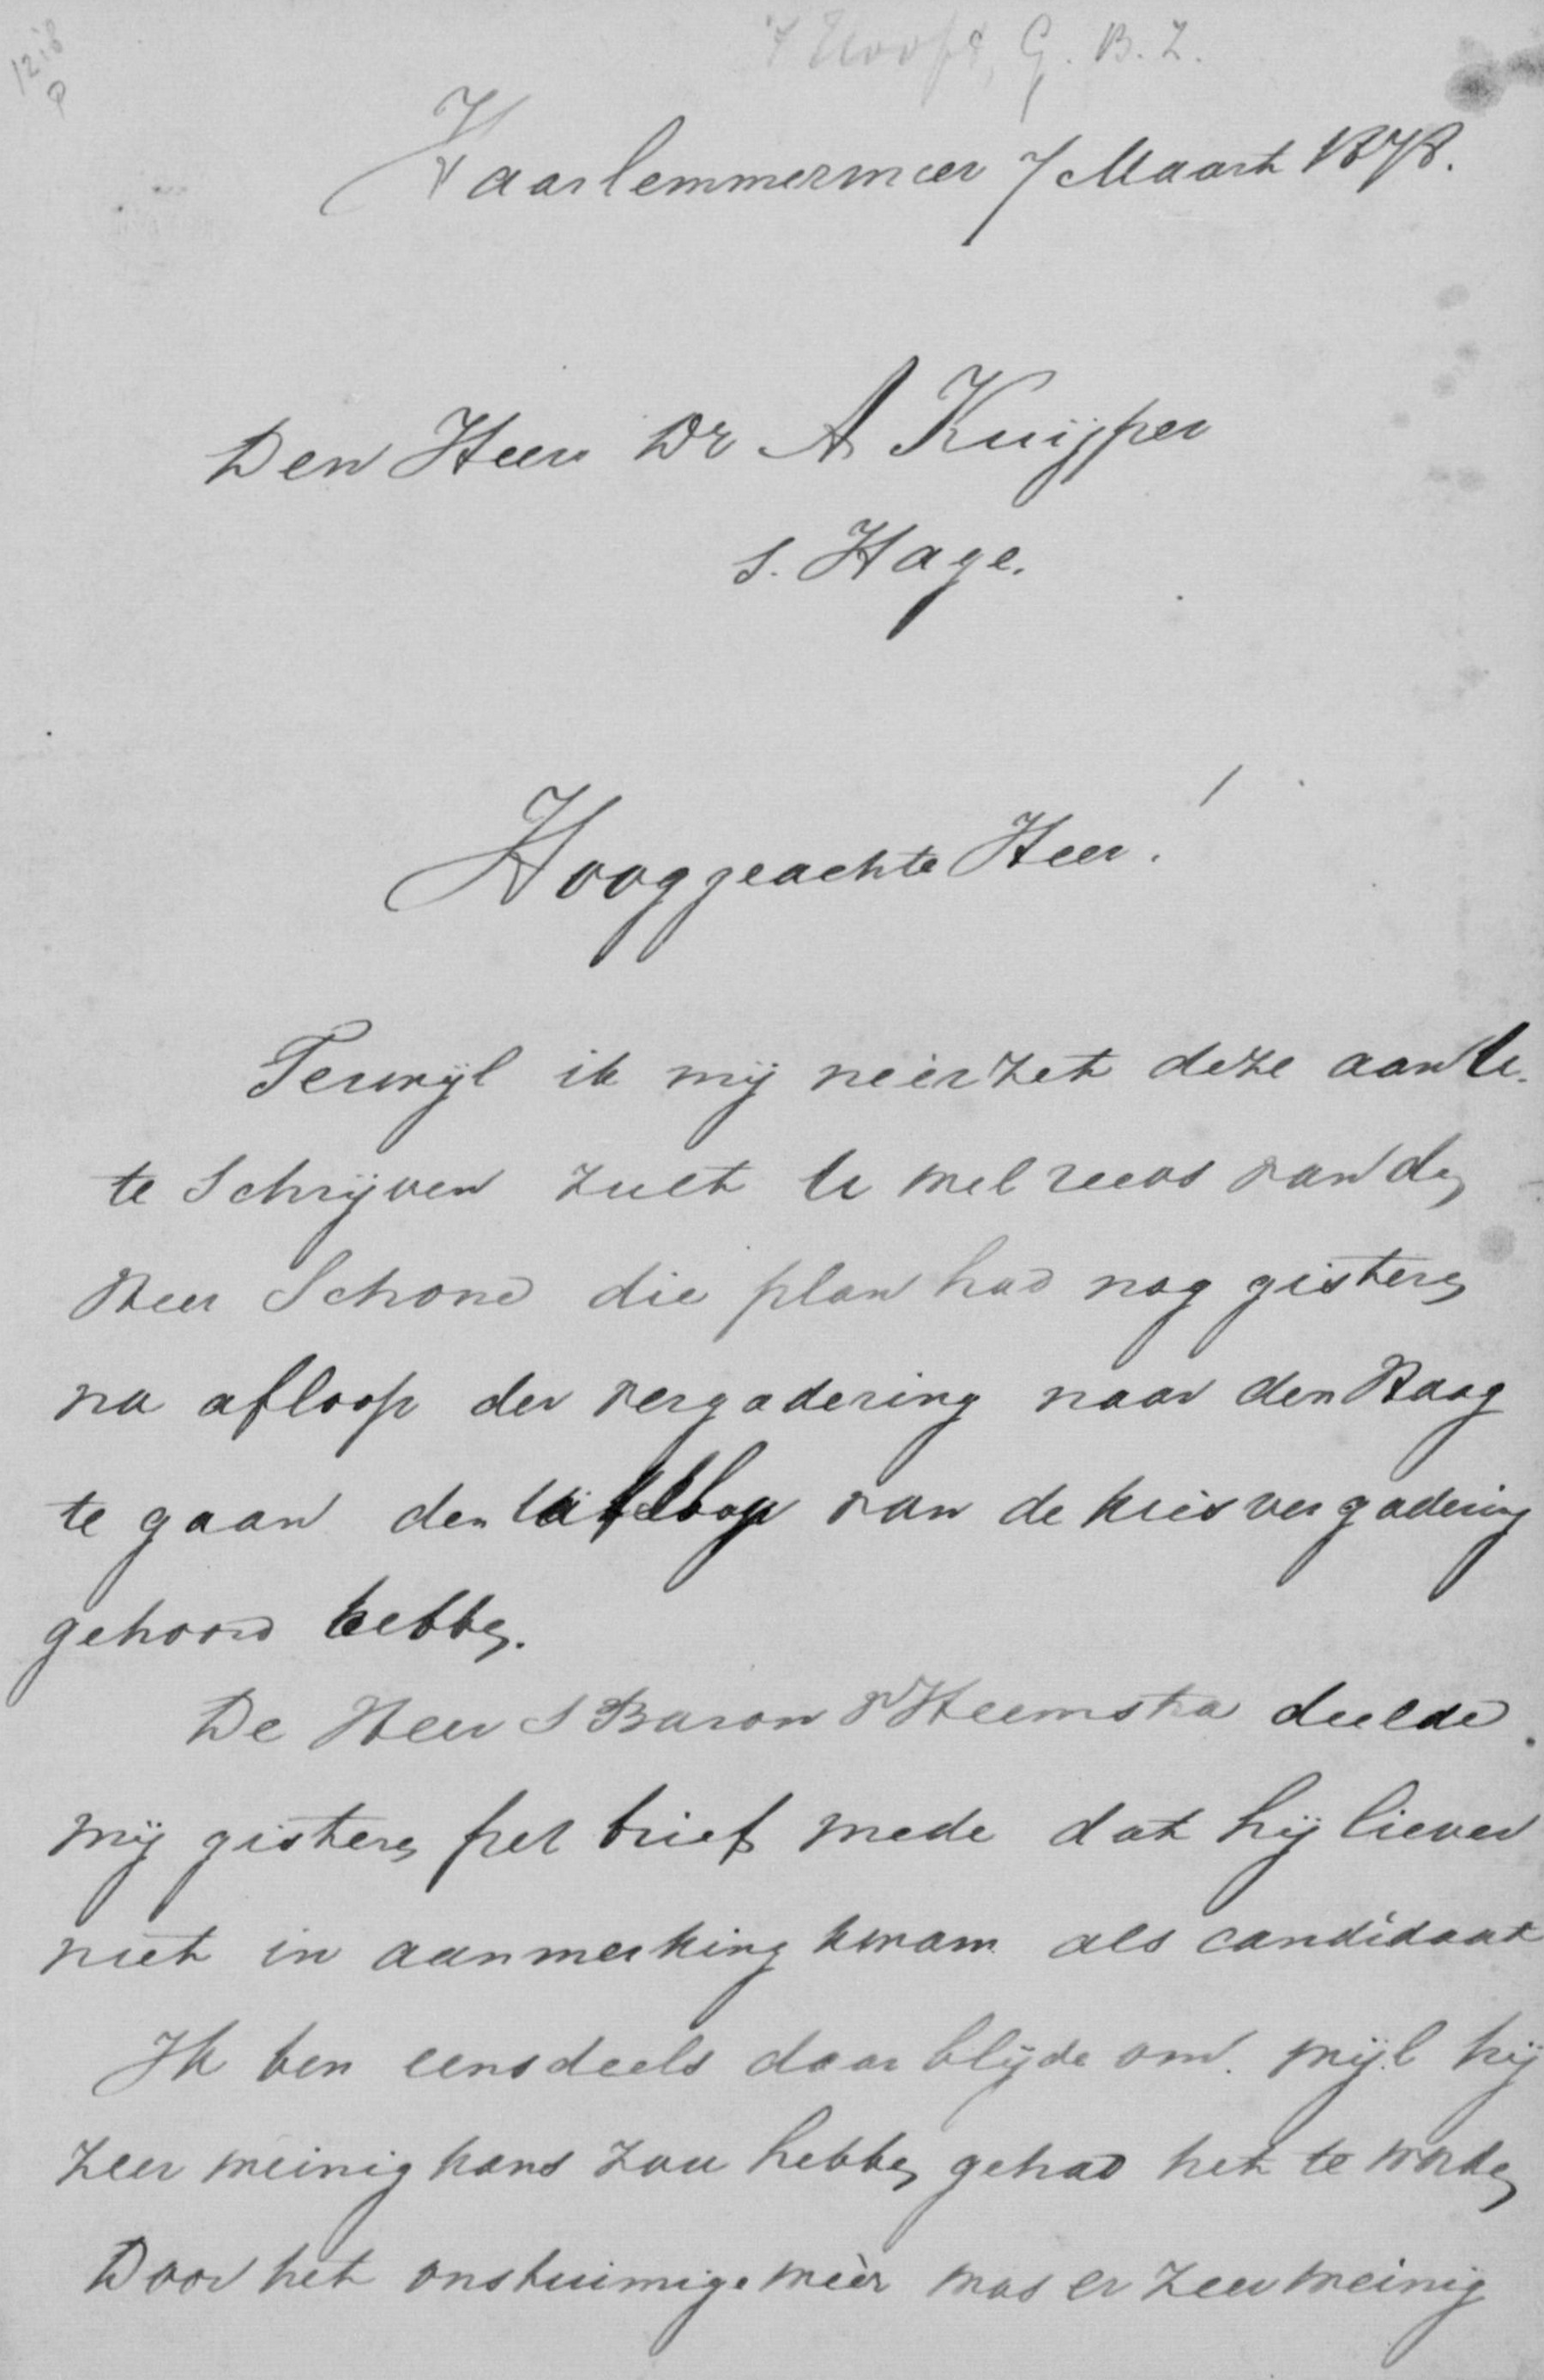 1218
't Hooft, G. B. Z.
Haarlemmermeer 7 Maart 1878.
Den Heer Dr A Kuijper
s. Hage.
Hooggeachte Heer!
Terwijl ik mij neèrzet deze aan U.
te schrijven zult U wel reeds van den
Heer Schone die plan had nog gisteren
na afloop der vergadering naar den Haag
te gaan den van de kiesvergadering
gehoord hebben.
De Heer S Baron v Heemstra deelde
mij gisteren per brief mede dat hij liever
niet in aanmerking kwam als candidaat
Ik ben eensdeels daar blijde om. wijl hij
zeer weinig kans zou hebben gehad het te worden
Door het onstuimige weèr was er zeer weinig